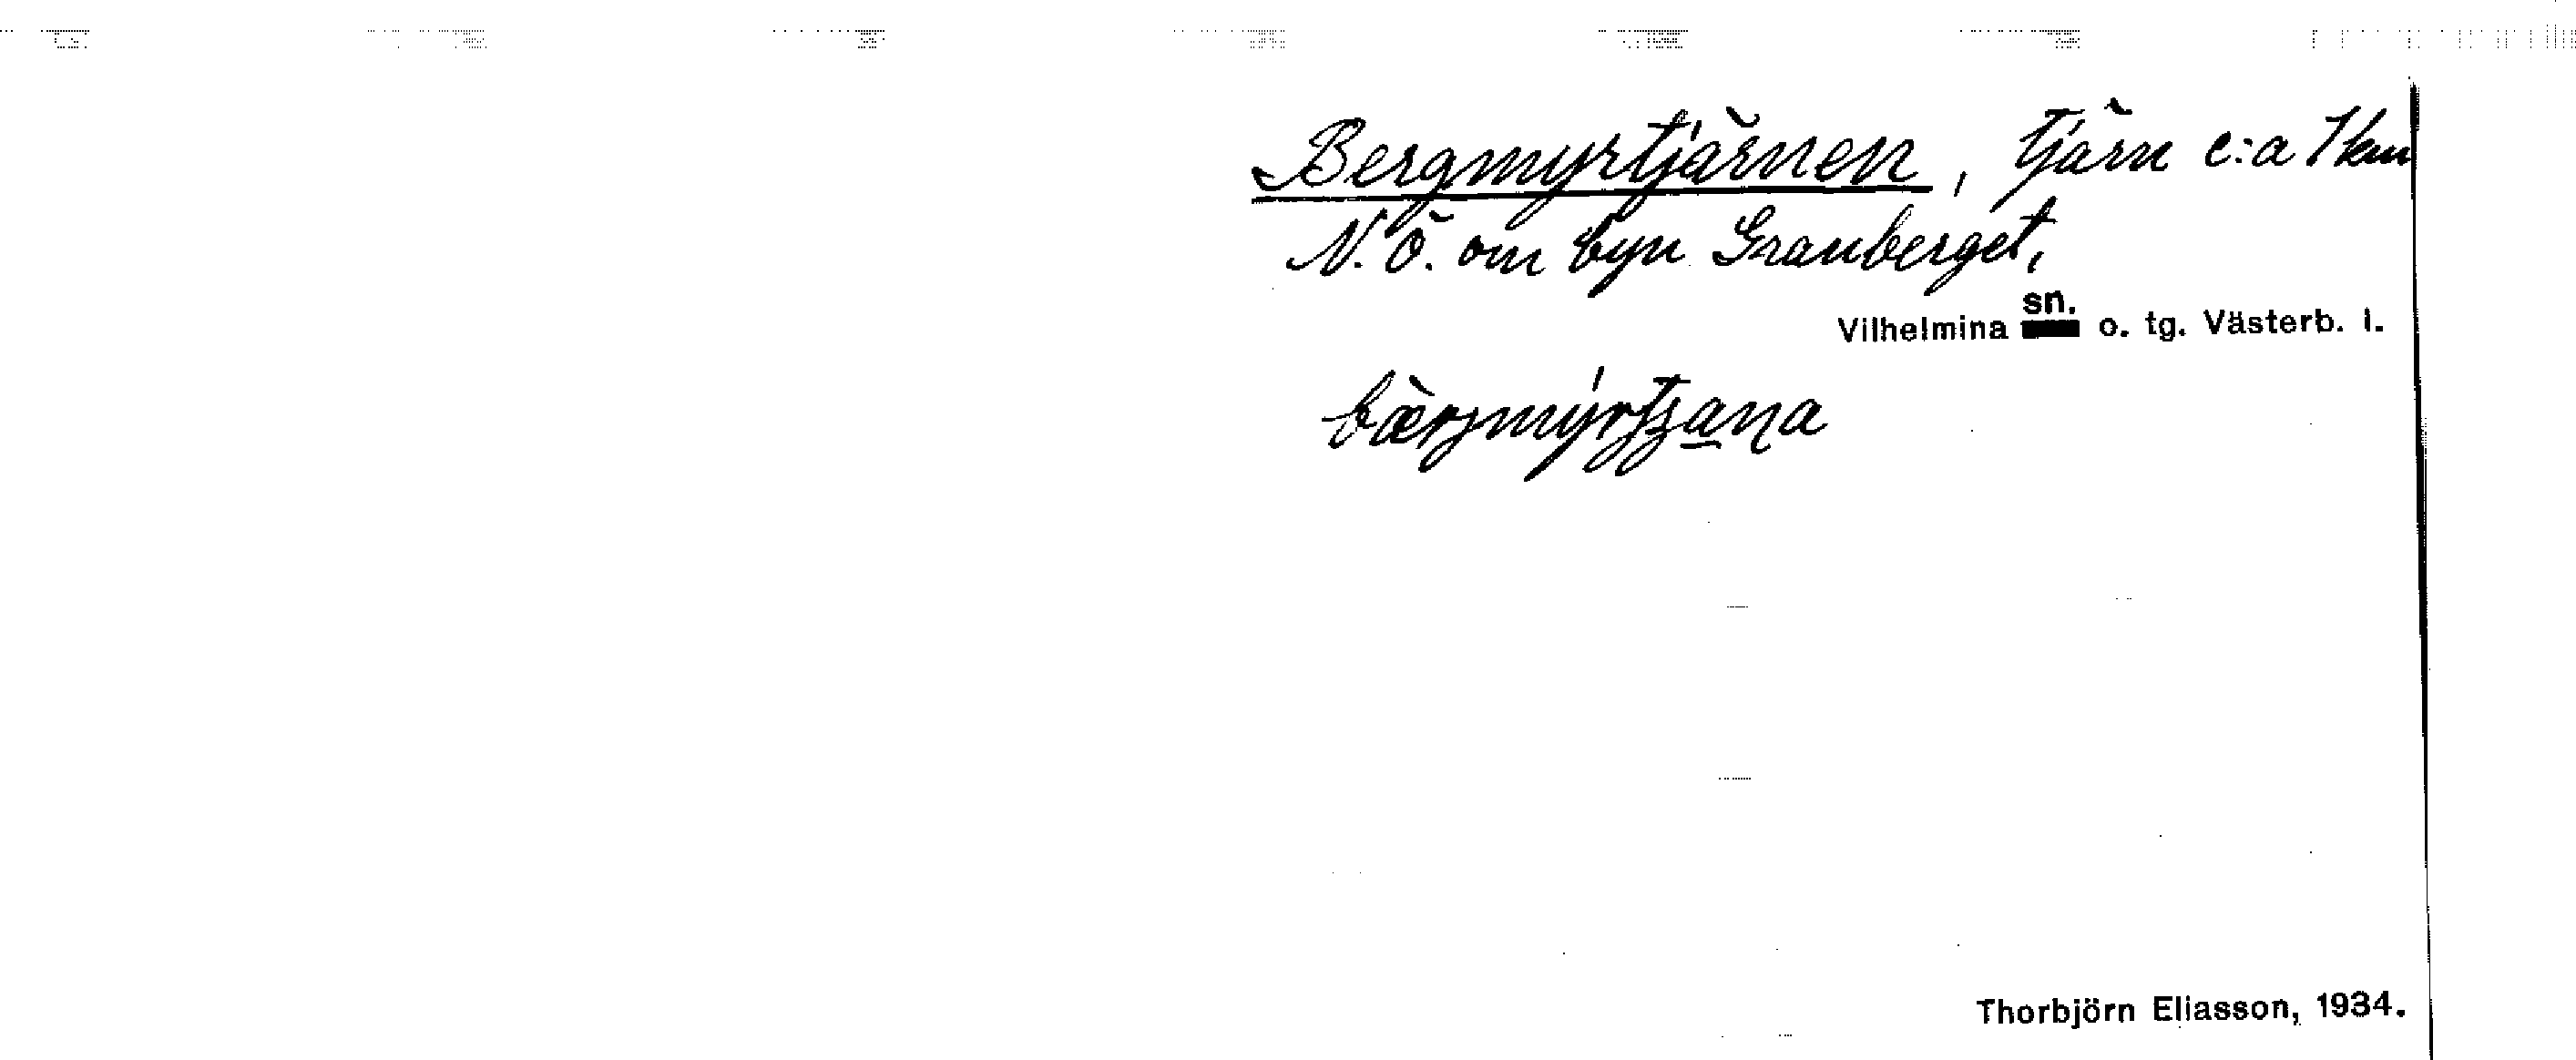 Bergmyrtjärnen, tjärn c:a 1 km
N.Ö. om byn Granberget,
Vilhelmina sn. o. tg. Västerb. l.
Thorbjörn Eliasson, 1934.